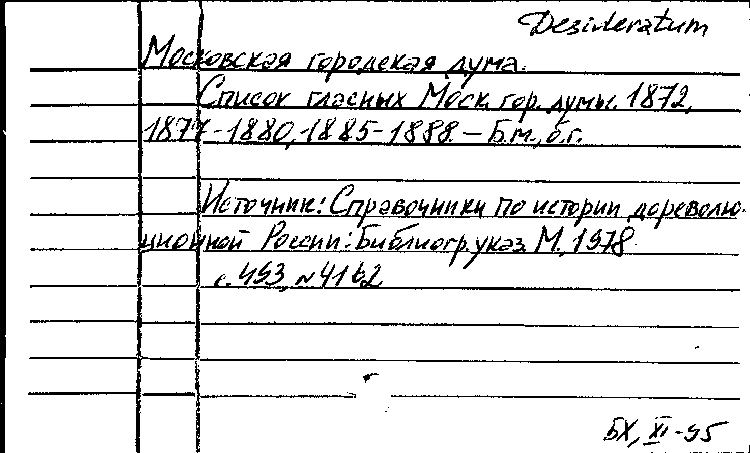 Desideratum
Московская городская дума.
Список гласных Моск. гор. думы. 1872,
1877-1880, 1885-1888. – Б.м., б.г.
Источник: Справочники по истории дореволю-
ционной России: Библиогр. указ. М., 1978.
с. 493, № 4162
БХ, XI-95